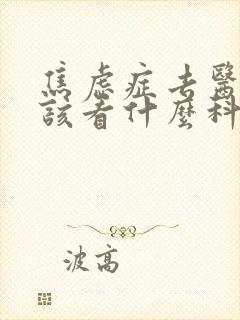 焦虑症去醫
該看什麼科
波高